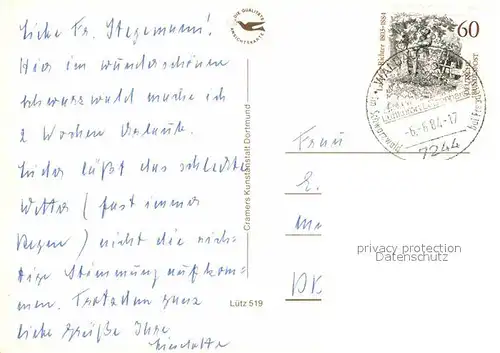 Liebe Fr. Stegemann!
Hier im wunderschönen
Schwarzwald mache ich
2 Wochen Urlaub.
Leider läßt das schlechte
Wetter (fast immer
Regen) nicht die rich-
tige Stimmung aufkom-
men. Trotzdem ganz
liebe Grüße Ihre
Lieselotte
DIE QUALITÄTS
ANSICHTSKARTE
Cramers Kunstanstalt Dortmund
Lütz 519
Richter 1803-1884
60
DEUTSCHE
BUNDESPOST
WALD
im Schwarzwald
-6.-6.84-17
7244
bei Freu
Frau
E.
DK
privacy protection
Datenschutz